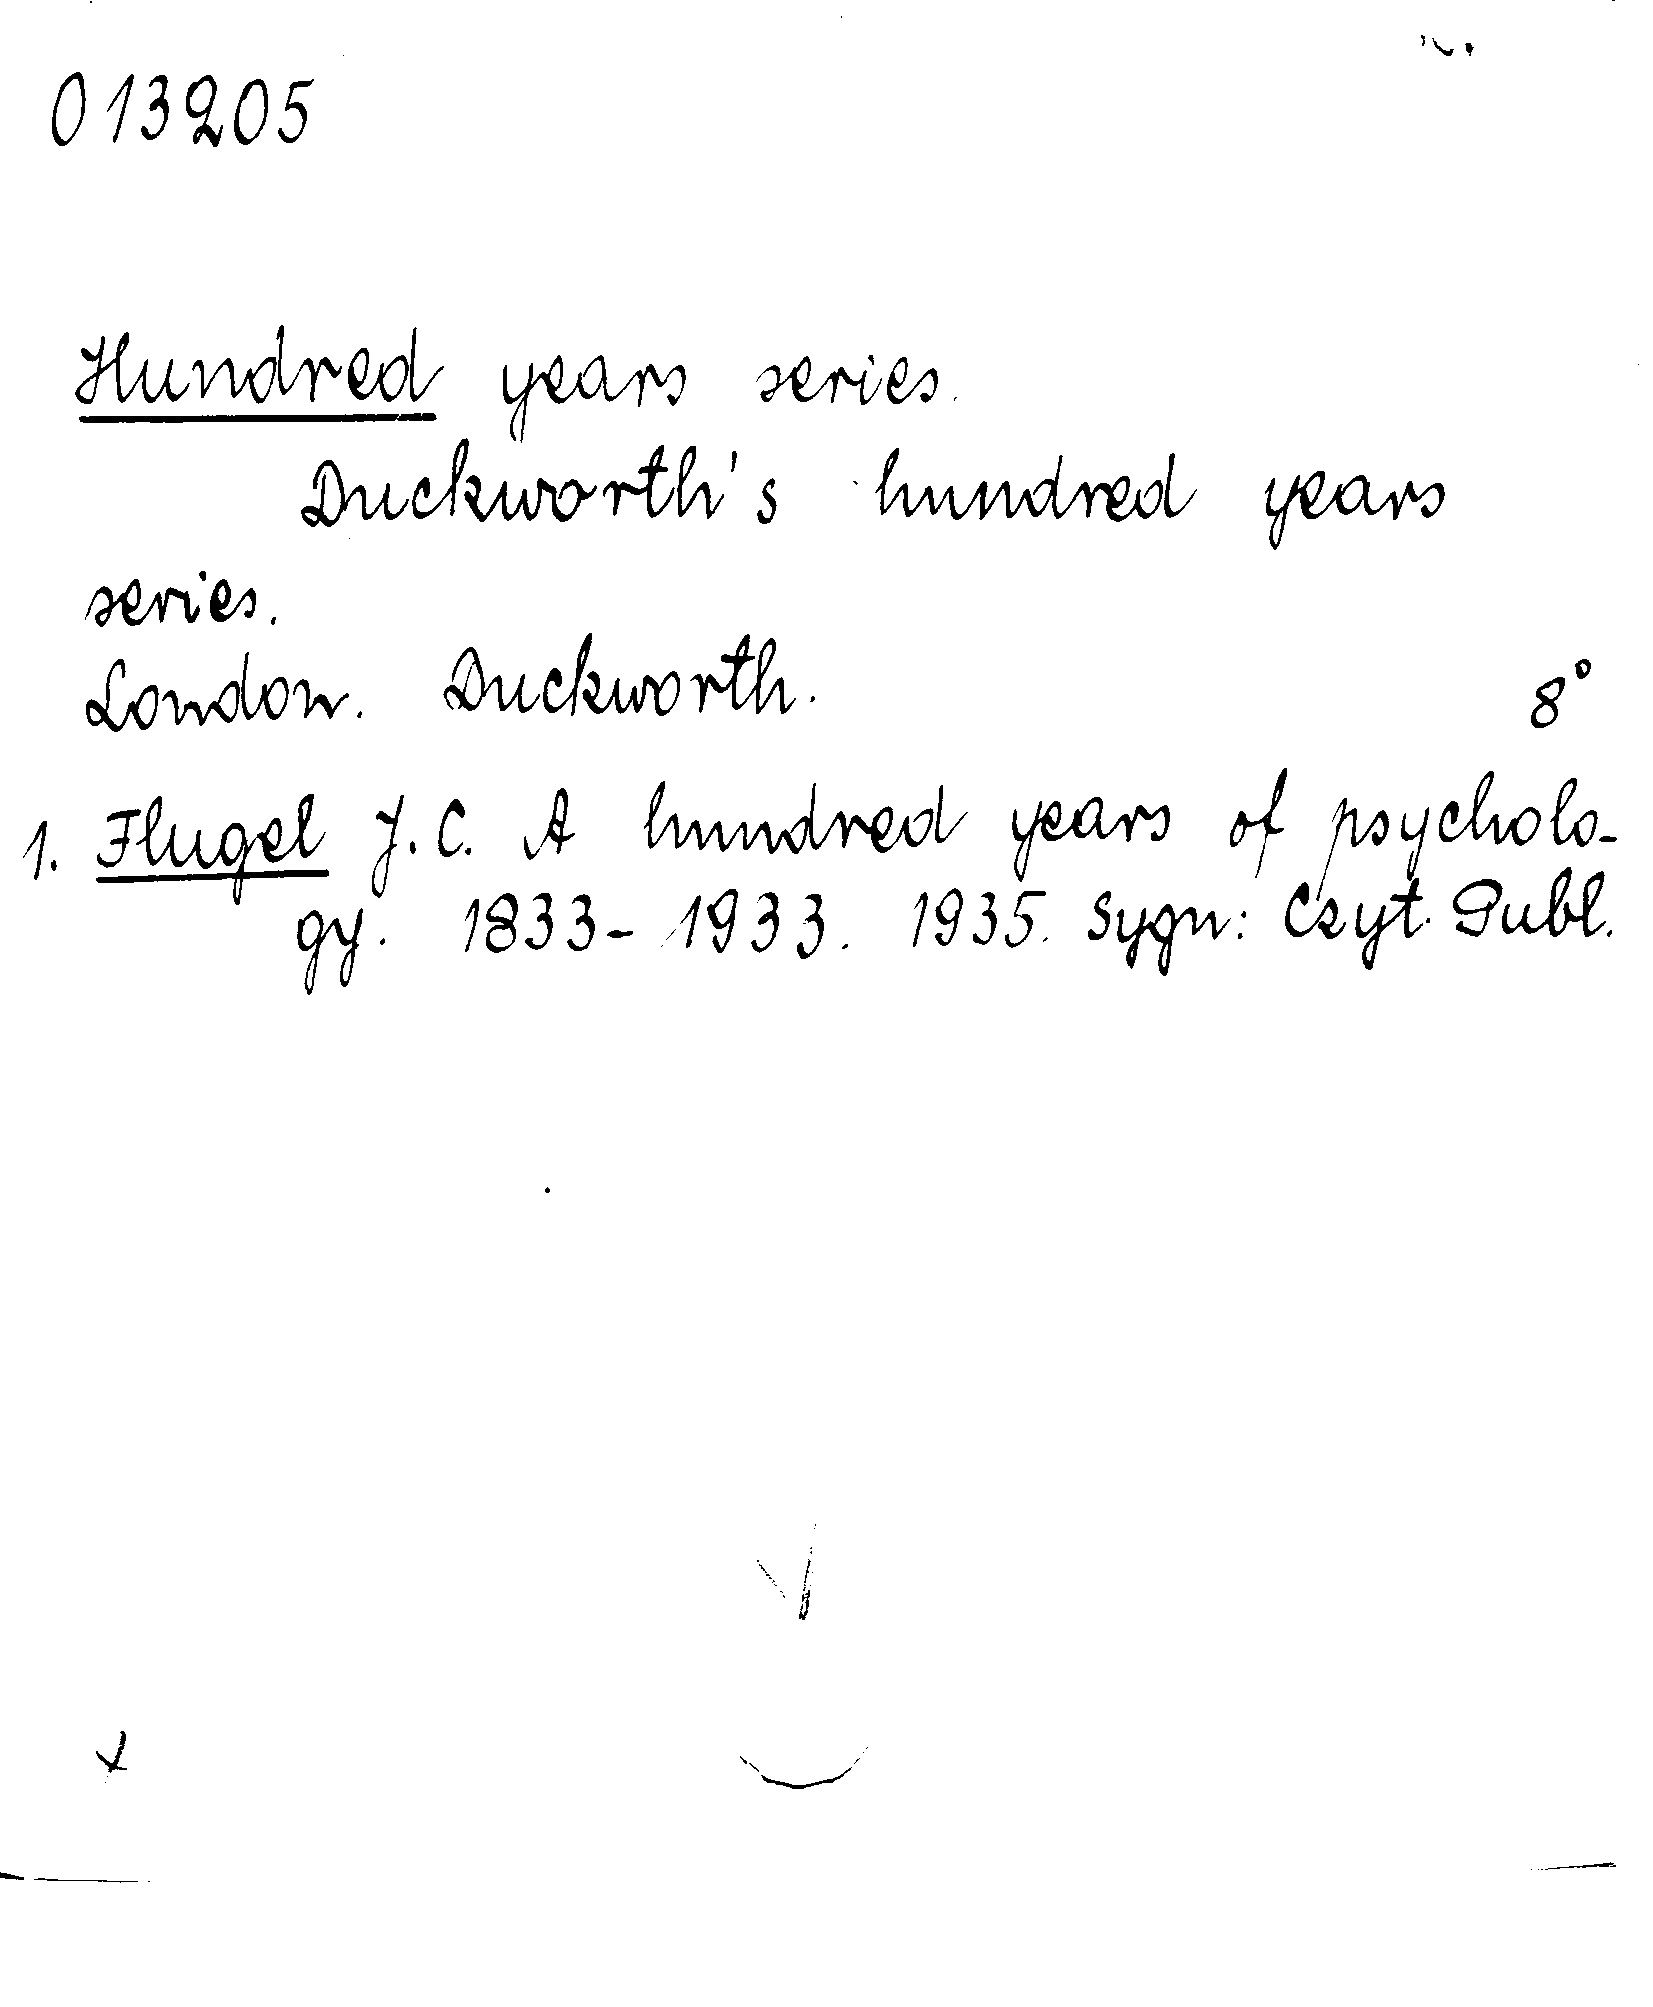 013205
Hundred years series.
Duckworth's hundred years
series.
London. Duckworth. 8°
1. Flugel J.C. A hundred years of psycholo-
gy. 1833-1933. 1935. Sygn: Czyt. Publ.